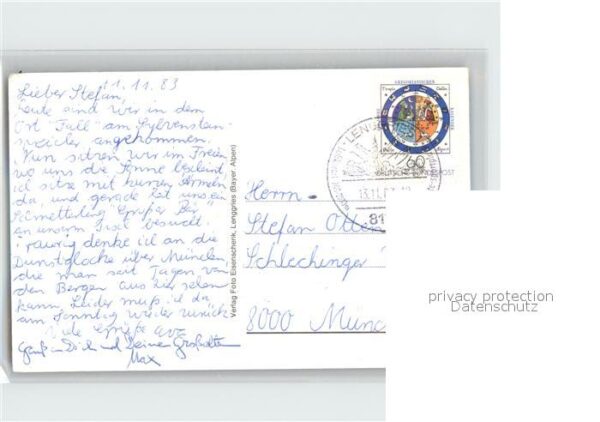 11.11.83
Lieber Stefan,
heute sind wir in dem
Ort Fall am Sylvenstein-
angekommen.
Nun sitzen wir im Freien
wo uns die Sonne bescheint
ich sitze mit kurzen Ärmeln
da, und gerade hat uns ein
Schmetterling "Großer Bär"
an unserm Tisch besucht.
Traurig denke ich an die
Dunstglocke über München,
die man seit Tagen von
den Bergen aus hier sehen
kann. Leider muß ich da
am Sonntag wieder zurück
Viele Grüße ave
Gruß an Dich und Deine Großeltern
Max
Verlag Foto Eisenschenk, Lenggries (Bayer. Alpen)
DEUTSCHE BUNDESPOST
60
LENGG
81
Herrn
Stefan Otten
Schlechinger
8000 Münc
privacy protection
Datenschutz